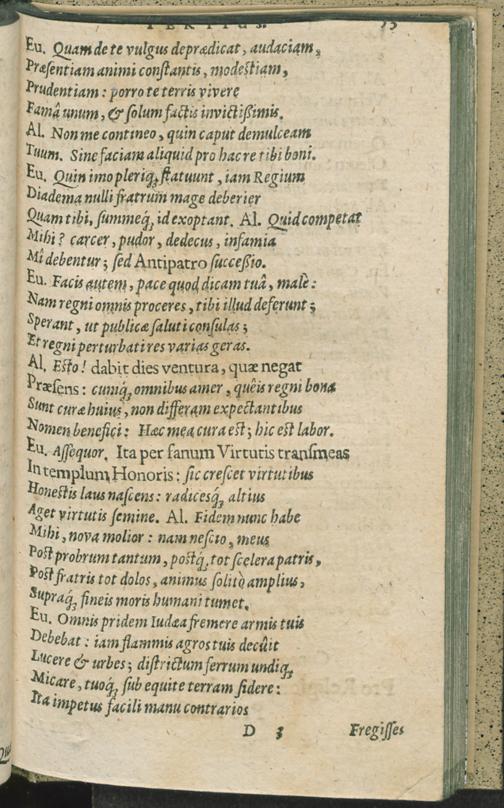 33
Eu. Quam de te vulgus deprædicat, audaciam,
Præsentiam animi constantis, modestiam,
Prudentiam: porro te terris vivere
Famâ unum, & solum factis invictißimis.
Al. Non me contineo, quin caput demulceam
Tuum. Sine faciam aliquid pro hac re tibi boni.
Eu. Quin imo pleriq; statuunt, iam Regium
Diadema nulli fratrum mage deberier
Quam tibi, summeq; id exoptant. Al. Quid competat
Mihi? carcer, pudor, dedecus, infamia
Mi debentur; sed Antipatro succeßio.
Eu. Facis autem, pace quod dicam tuâ, malè:
Nam regni omnis proceres, tibi illud deferunt;
Sperant, ut publicæ saluti consulas;
Et regni perturbati res varias geras.
Al. Esto! dabit dies ventura, quæ negat
Præsens: cuniq; omnibus amer, quêis regni bona
Sunt curæ huius, non differam expectantibus
Nomen benefici: Hæc mea cura est; hic est labor.
Eu. Assequor. Ita per fanum Virtutis transmeas
In templum Honoris: sic crescet virtutibus
Honestis laus nascens: radicesq; altius
Aget virtutis semine. Al. Fidem nunc habe
Mihi, nova molior: nam nescio, meus
Post probrum tantum, postq; tot scelera patris,
Post fratris tot dolos, animus solitò amplius,
Supraq; fineis moris humani tumet.
Eu. Omnis pridem Iudæa fremere armis tuis
Debebat: iam flammis agros tuis decûit
Lucere & urbes; districtum ferrum undiq;
Micare, tuoq; sub equite terram sidere:
Ita impetus facili manu contrarios
D 3 Fregisses